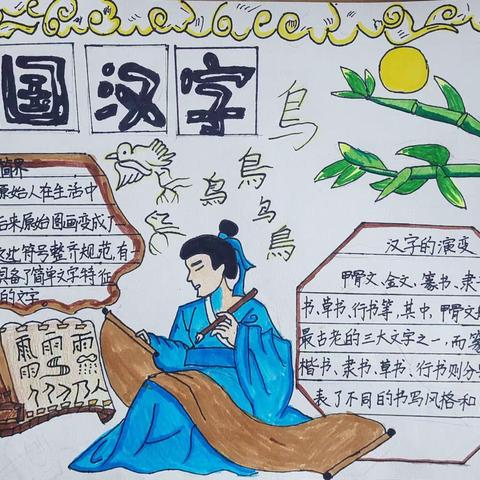 国汉字
鳥
鳥
鳥
鳥
鳥
简界
原始人在生活中
后来原始图画变成了
这些符号整齐规范,有一
具备了简单文字特征
的文字
雨雨
人
汉字的演变
甲骨文、金文、篆书、隶
书、草书、行书等,其中,甲骨文
最古老的三大文字之一,而篆
楷书、隶书、草书、行书则分
表了不同的书写风格和